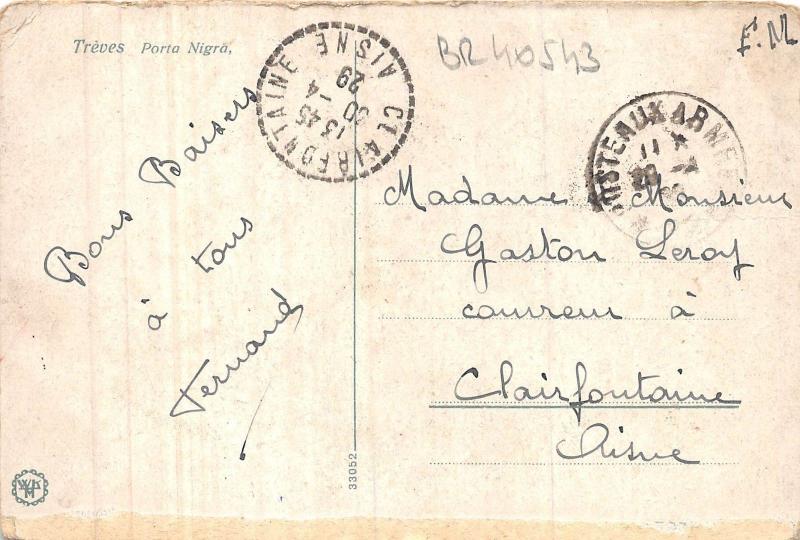 Trèves Porta Nigra,
BR40543
F. M
CLAIRFONTAINE AISNE
13 45
30 -4
29
POSTE AUX ARMEES
Bons Baisers
à tous
Fernand
Madame Monsieur
Gaston Leroy
couvreur à
Clairfontaine
Aisne
33052